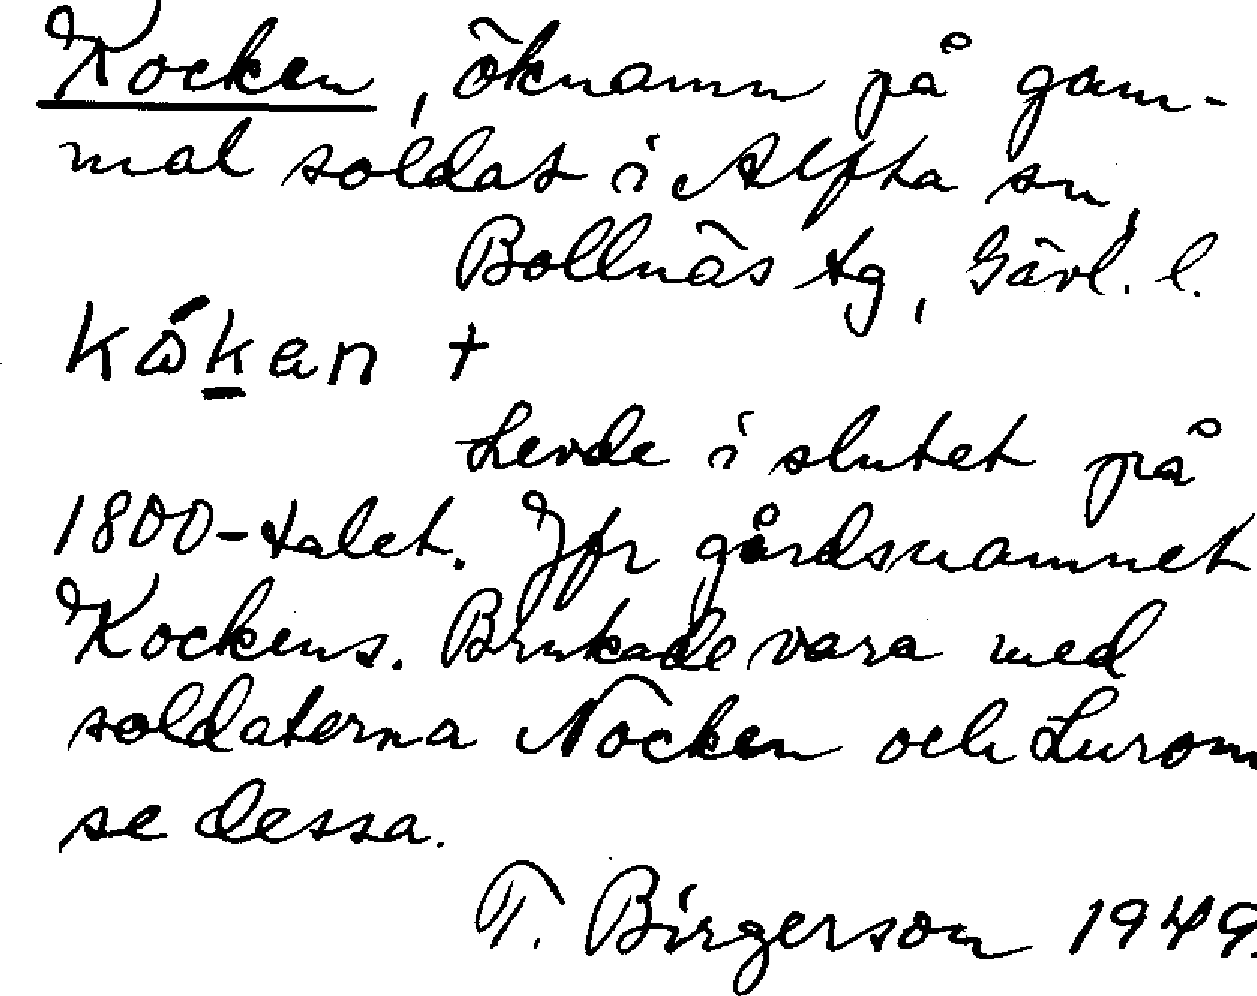 Kocken, öknamn på gam-
mal soldat i Alfta sn,
Bollnäs tg, Gävl. l.
kåkan +
Levde i slutet på
1800-talet. Jfr gårdsnamnet
Kockens. Brukade vara med
soldaterna Nöcken och Lurom
se dessa.
T. Birgerson 1949.